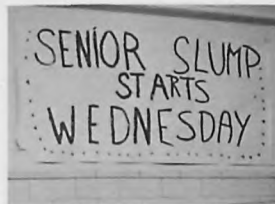 SENIOR SLUMP
STARTS
WEDNESDAY